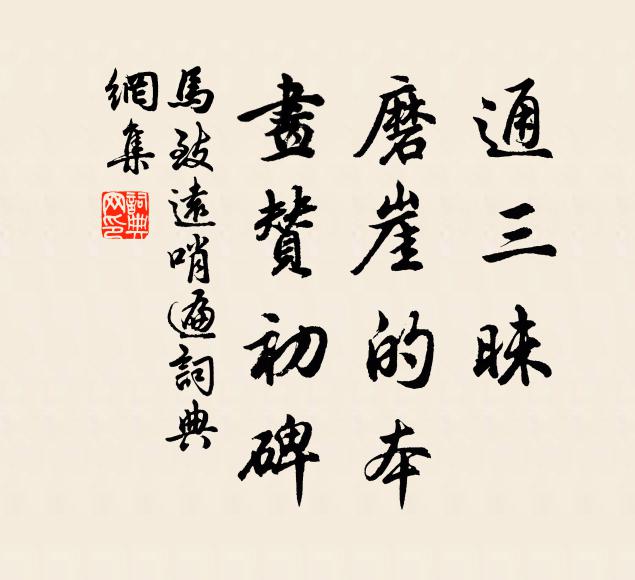 通三昧
磨崖的本
畫贊初碑
馬致遠哨遍詞典
網集
詞典
网印